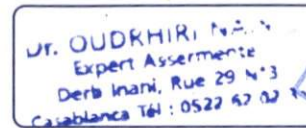 Dr. OUDRHIRI
Expert Assermenté
Derb Inani, Rue 29 N°3
Casablanca Tél : 0522